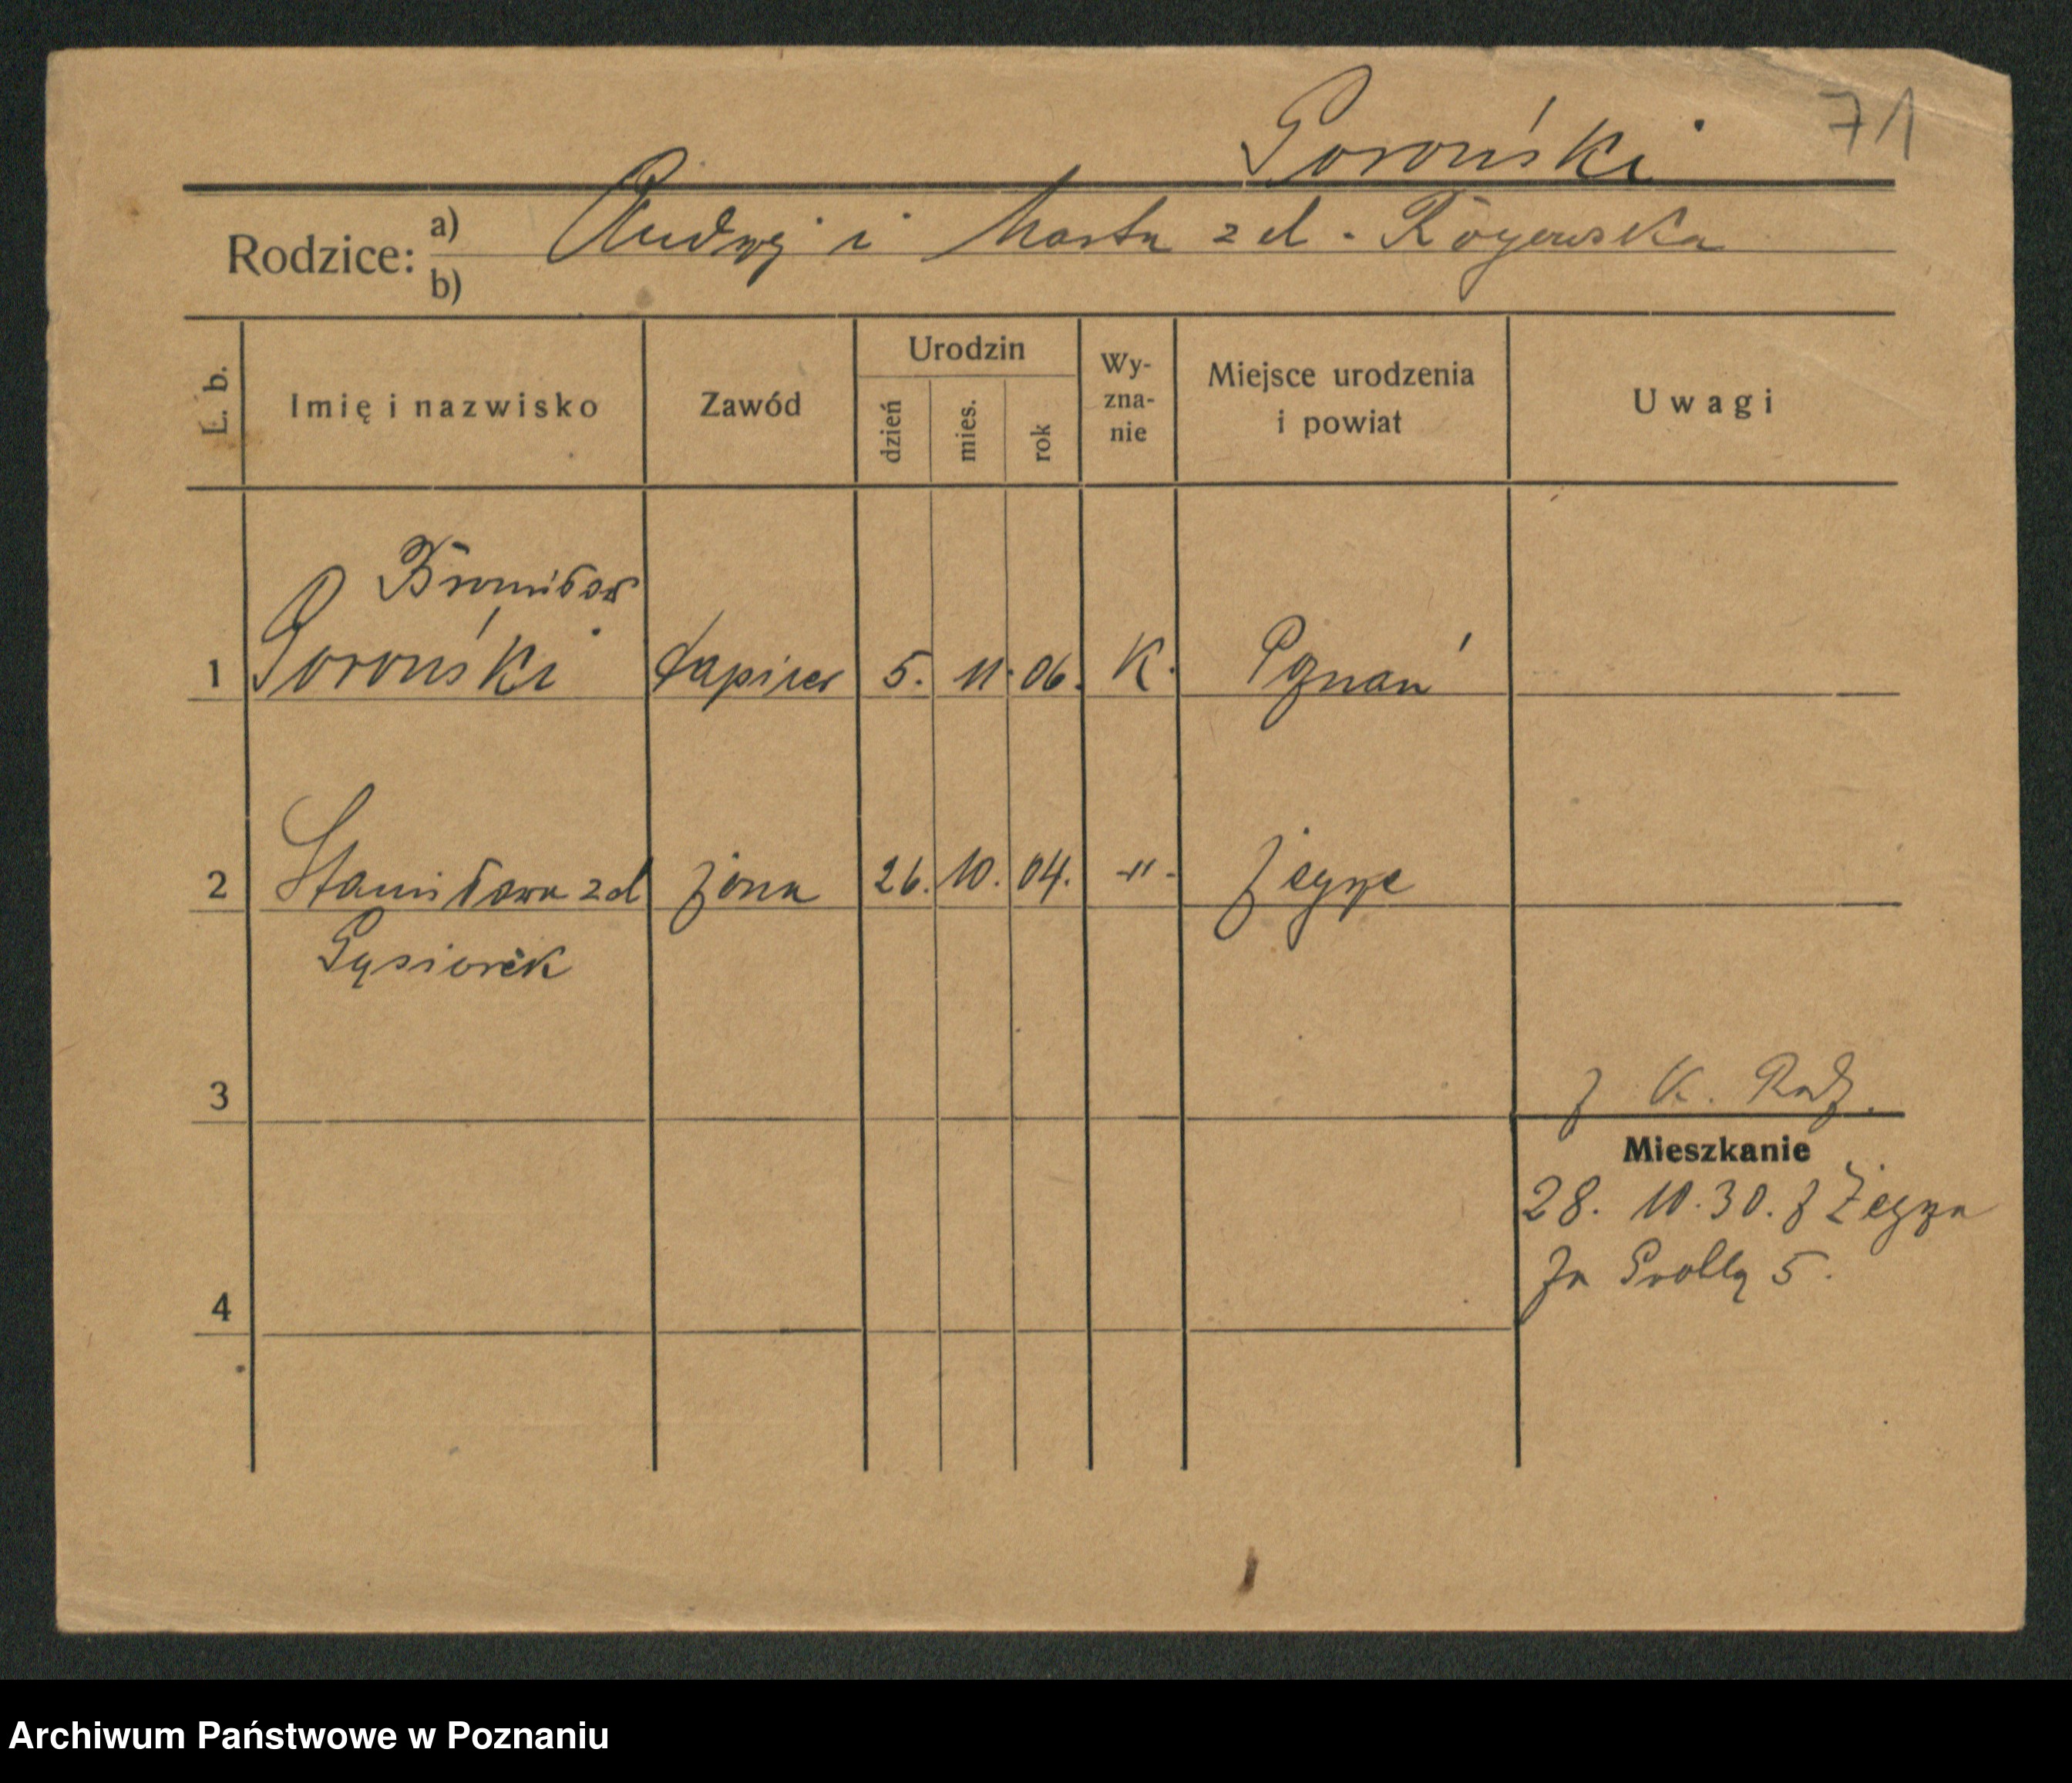 71
Goroński
Rodzice: a) Andrzej i Marta z d. Rogowska
b)
L. b.
Imię i nazwisko
Zawód
Urodzin
dzień
mies.
rok
Wy-
zna-
nie
Miejsce urodzenia
i powiat
Uwagi
Bronisław
1 Goroński tapicer 5. 11. 06. K. Poznań
2 Stanisława z d żona 26. 10. 04. -"- Żegrze
Gąsiorek
3
K. Radz.
Mieszkanie
28. 10. 30. z Żegrza
Za Groblą 5.
4
Archiwum Państwowe w Poznaniu